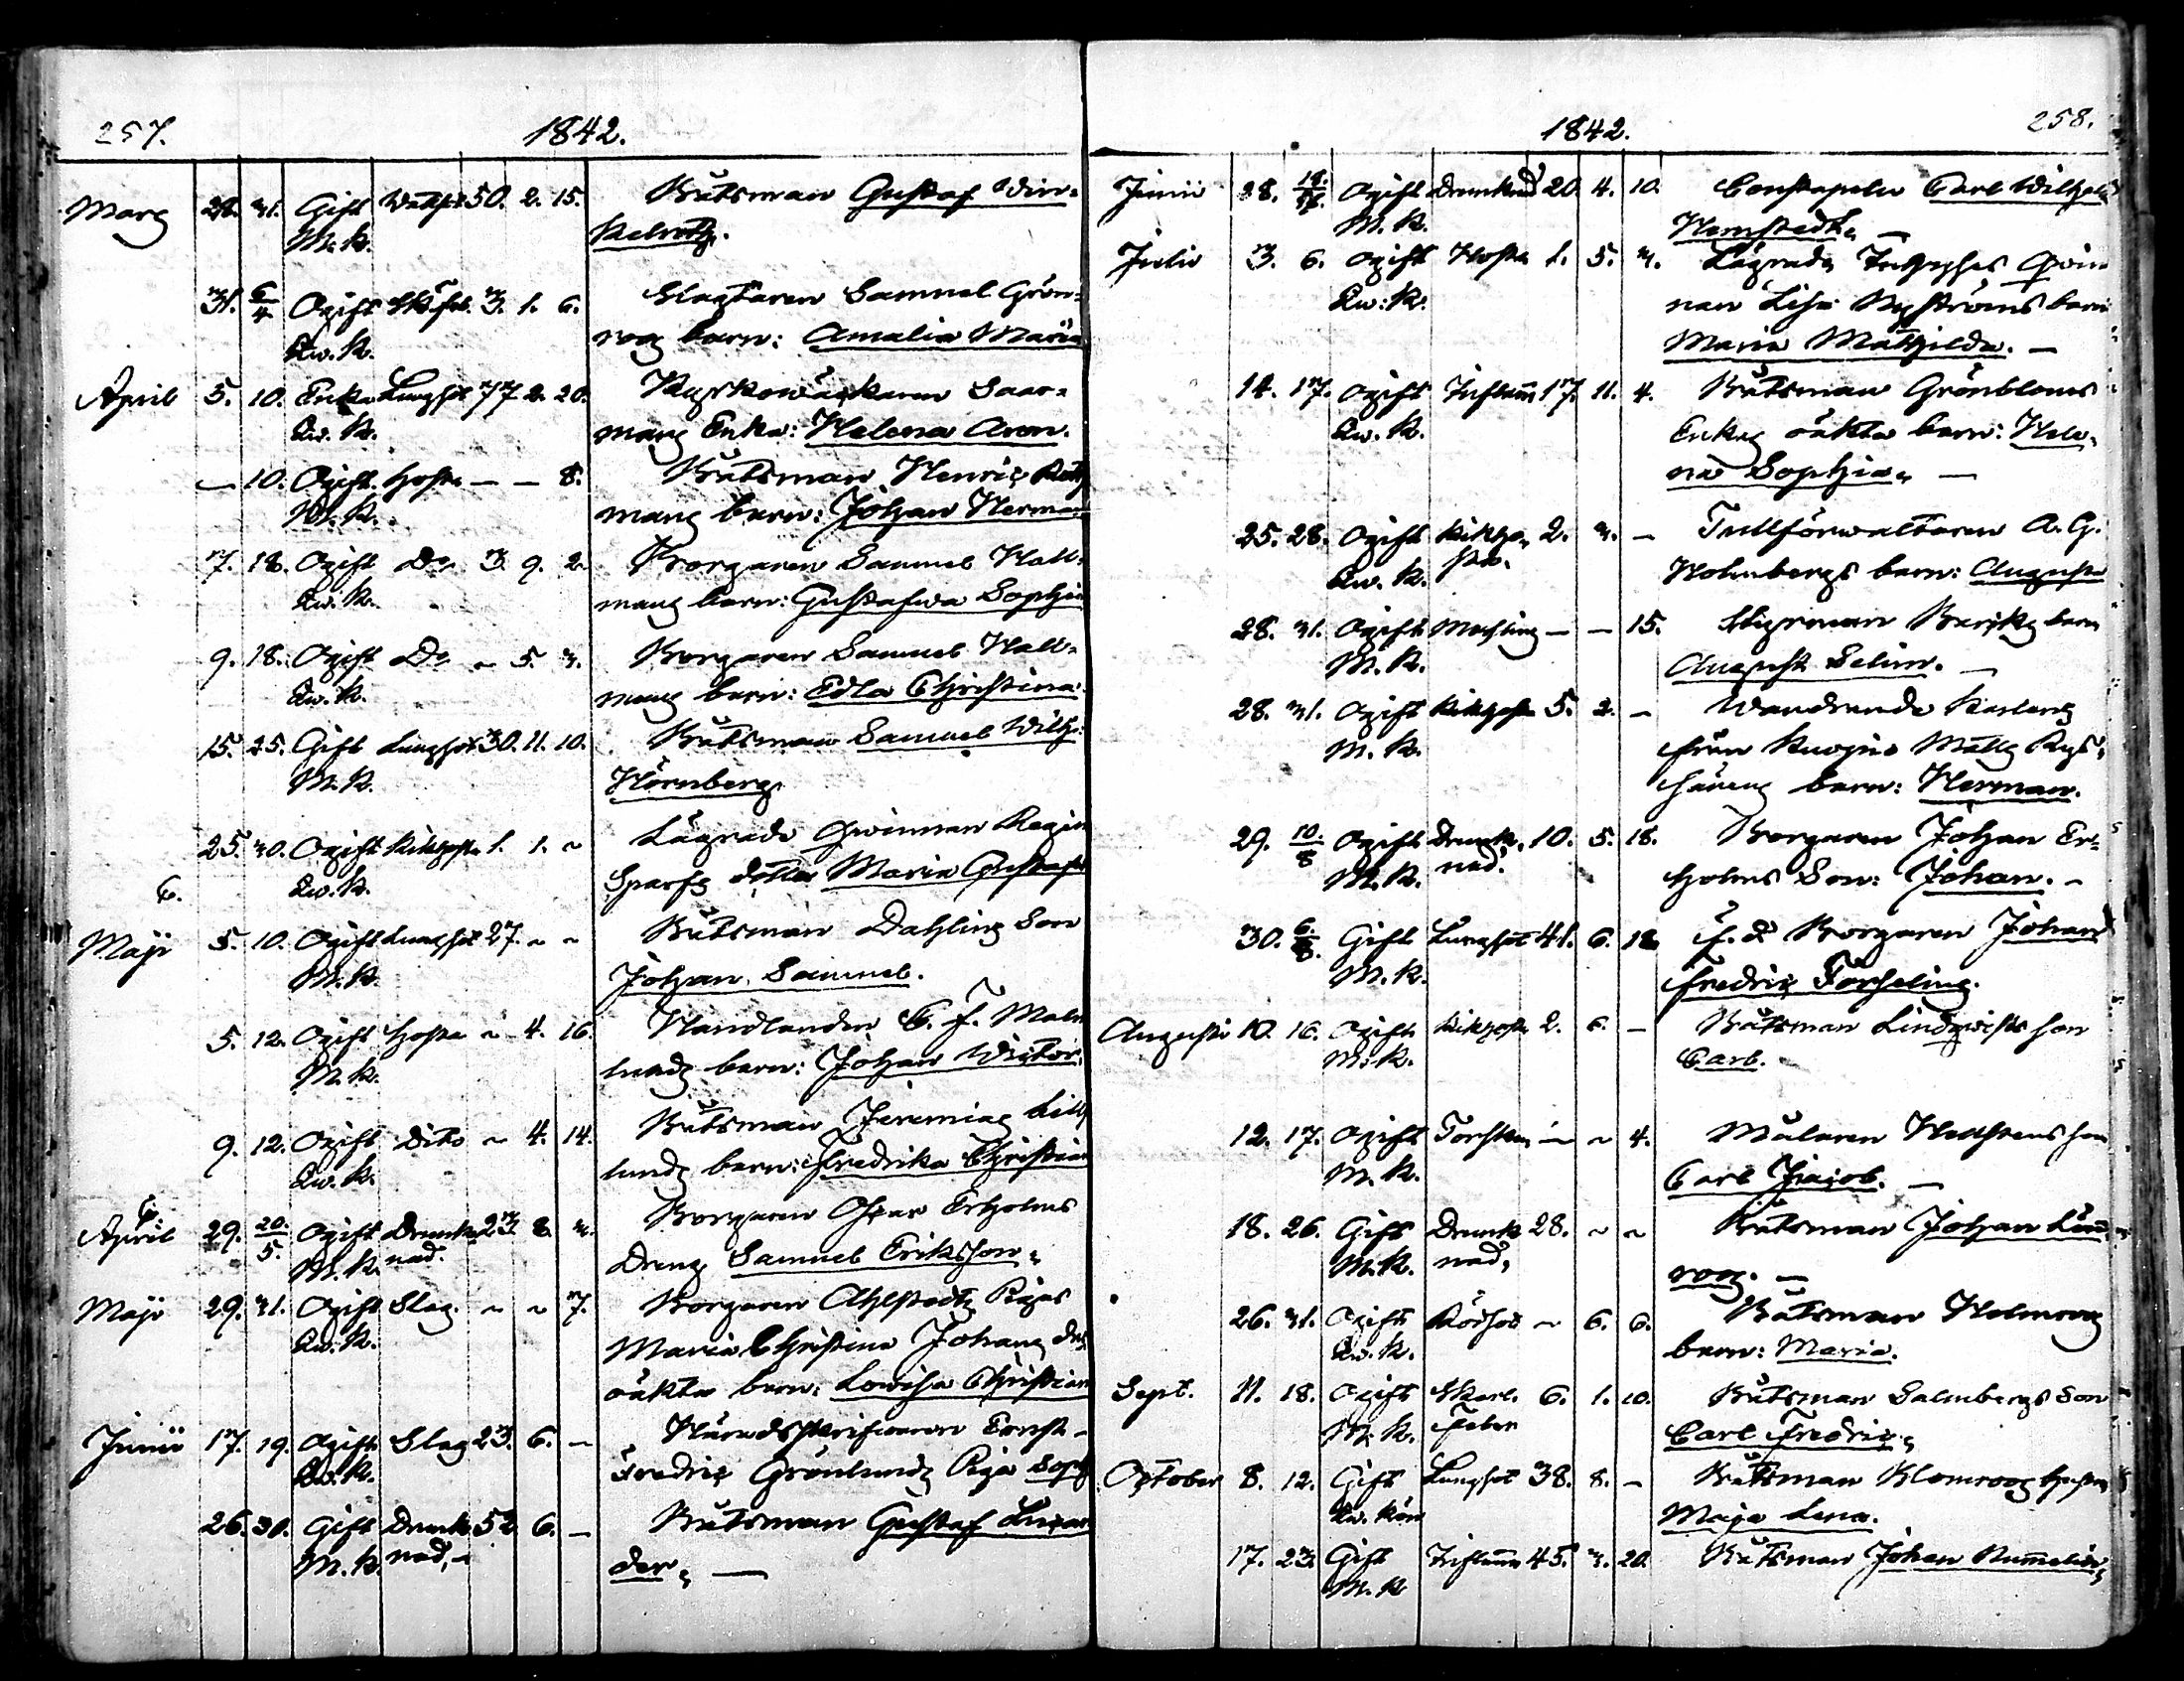 257.
1842.
Mars 28. 31. Gift Wattsot 50. 2. 15. Båtsman Gustaf Win-
M. K. kelroth.
31. 6/4 Ogift 3. 1. 6. Slagtaren Samuel Grön-
Qw. K. roos barn: Amalia Maria
April 5. 10. Enka Lungsot 77 2. 20. Skarman
Qw. K. mans Enka: Helena Aron.
— 10. Ogift Hosta — — 8. Båtsman Henric
M. K. mans barn: Johan Herman
7. 18. Ogift Do 3. 9. 2. Borgaren Samuel Hall-
Qw. K. mans barn: Gustafwa Sophia
9. 18. Ogift Do ~ 5. 3. Borgaren Samuel Hall-
Qw. K. mans barn: Edla Christina
15. 25. Gift Lungsot 30. 11. 10. Båtsman Samuel Wilh:
M. K. Hörnberg
25. 30. Ogift Kikhosta 1. 1. ~ Lägrade Qwinnan Regina
Qw. K. Sparfs dotter Maria Gustafa
6.
Maji 5. 10. Ogift Lungsot 27. ~ ~ Båtsman Dahling Son
M. K. Johan Samuel.
5. 12. Ogift Hosta ~ 4. 16. Handlanden C. F. Malm
M. K. lunds barn: Johan Victor.
9. 12. Ogift Dito ~ 4. 14. Båtsman Jeremias Lill
Qw. K. lunds barn: Fredrika Christina
April 29. 20/5. Ogift Drunk- 23 8. 3. Borgaren Oscar Erholms
M. K. nad. Dreng Samuel Eriksson.
Maji 29. 31. Ogift Slag. ~ ~ 7. Borgaren Ahlstedts Pigas
Qw. K. Maria Christina Johans dr
oäkta barn: Lowisa Christina
Junii 17. 19. Ogift Slag 23. 6. — Häradsskrifwaren Ernst
Qw. K. Fredric Grönlunds Piga Soph
26. 30. Gift Drunk- 52 6. — Båtsman Gustaf
M. K. nad, — der. —
1842.
258.
Junii 28. Ogift Drunknad 20. 4. 10. Constapeln Carl Wilhelm
M. K. Hemstedt. —
Julii 3. 6. Ogift Hosta 1. 5. 3. Lägrade Qwin
Qw: K. nan Lisa Nyströms barn
Maria Mathilda. —
14. 17. Ogift 17. 11. 4. Båtsman Grönbloms
Qw. K. Enkas oäkta barn: Hele-
na Sophia. —
25. 28. Ogift Kikho- 2. 3. — Tullförwaltaren A. G.
Qw. K. sta. Holmbergs barn: Augusta
28. 31. Ogift Messling — — 15. Styrman barn
M. K. August Selim. —
28. 31. Ogift Kikhosta 5. 2. — Wandrande Karlens
M. K. från Kuopio Matts
barn: Herman.
29. 10/8 Ogift Drunk- 10. 5. 18. Borgaren Johan Er-
M. K. nad. holms Son: Johan. —
30. 6/8. Gift Lungsot 41. 6. 18. f. d. Borgaren Johan
M. K. Fredric Forseling.
Augusti 10. 16. Ogift Kikhosta 2. 6. — Båtsman Lindqwists son
M. K. Carl.
12. 17. Ogift Torsken — ~ 4. Målaren Hellstens son
M. K. Carl Jacob. —
18. 26. Gift Drunk- 28. ~ ~ Båtsman Johan Lönn
M. K. nad, roos. —
26. 31. Ogift Rödsot ~ 6. 6. Båtsman Holmroos
Qw. K. barn: Maria.
Sept. 11. 18. Ogift Skarl. 6. 1. 10. Båtsman Salmbergs Son
M. K. Feber Carl Fredric.
October 8. 12. Gift Lungsot 38. 8. — Båtsman Blomroos hustru
Qw. Kön Maja Lena.
17. 23. Gift 45. 3. 20. Båtsman Johan Rumelin
M. K